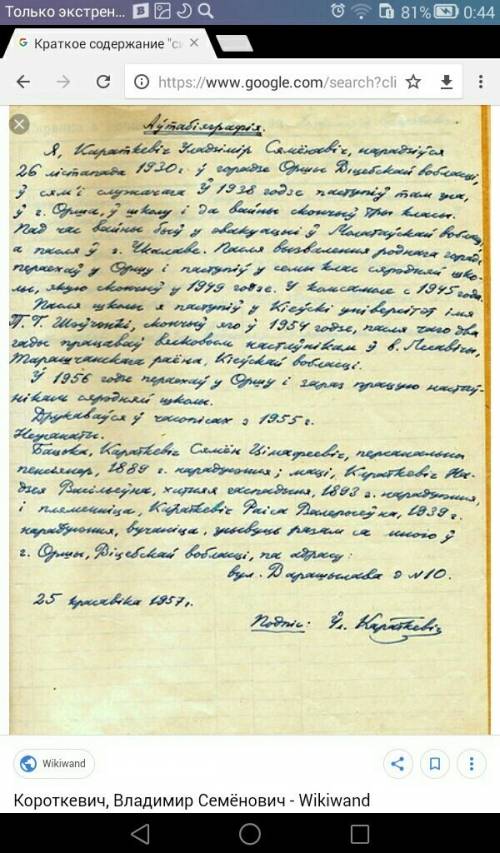 Только экстрен...
81%
0:44
Краткое содержание "си
https://www.google.com/search?cli
Аўтабіяграфія.
Я, Караткевіч Уладзімір Сямёнавіч, нарадзіўся
26 лістапада 1930 г. ў горадзе Оршы Віцебскай вобласці,
ў сям'і служачага. Ў 1938 годзе паступіў там жа,
ў г. Орша, ў школу і да вайны скончыў тры класы.
Пад час вайны быў у эвакуацыі ў Молатаўскай вобласці,
а пасля ў г. Чкалаве. Пасля вызвалення роднага горада
пераехаў у Оршу і паступіў у семы клас сярэдняй шко-
лы, якую скончыў у 1949 годзе. У камсамоле с 1945 года.
Пасля школы я паступіў у Кіеўскі універсітэт імя
Т. Г. Шэўчэнкі, скончыў яго ў 1954 годзе, пасля чаго два
гады працаваў вясковым настаўнікам ў в. Лесавічы,
Таращчанскага раёна, Кіеўскай вобласці.
Ў 1956 годзе пераехаў у Оршу і зараз працую настаў-
нікам сярэдняй школы.
Друкаваўся ў часопісах з 1955 г.
Нежанаты.
Бацька, Караткевіч Сямён Цімафеевіч, персанальны
пенсіянер, 1889 г. нараджэння; маці, Караткевіч На-
дзея Васільеўна, хатняя гаспадыня, 1893 г. нараджэння,
і пляменніца, Караткевіч Раіса Валероеўна, 1939 г.
нараджэння, вучаніца, жывуць разам са мною ў
г. Оршы, Віцебскай вобласці, па адрасу:
вул. Варашылава д № 10.
25 красавіка 1957 г.
Подпіс: Ул. Караткевіч
Wikiwand
Короткевич, Владимир Семёнович - Wikiwand